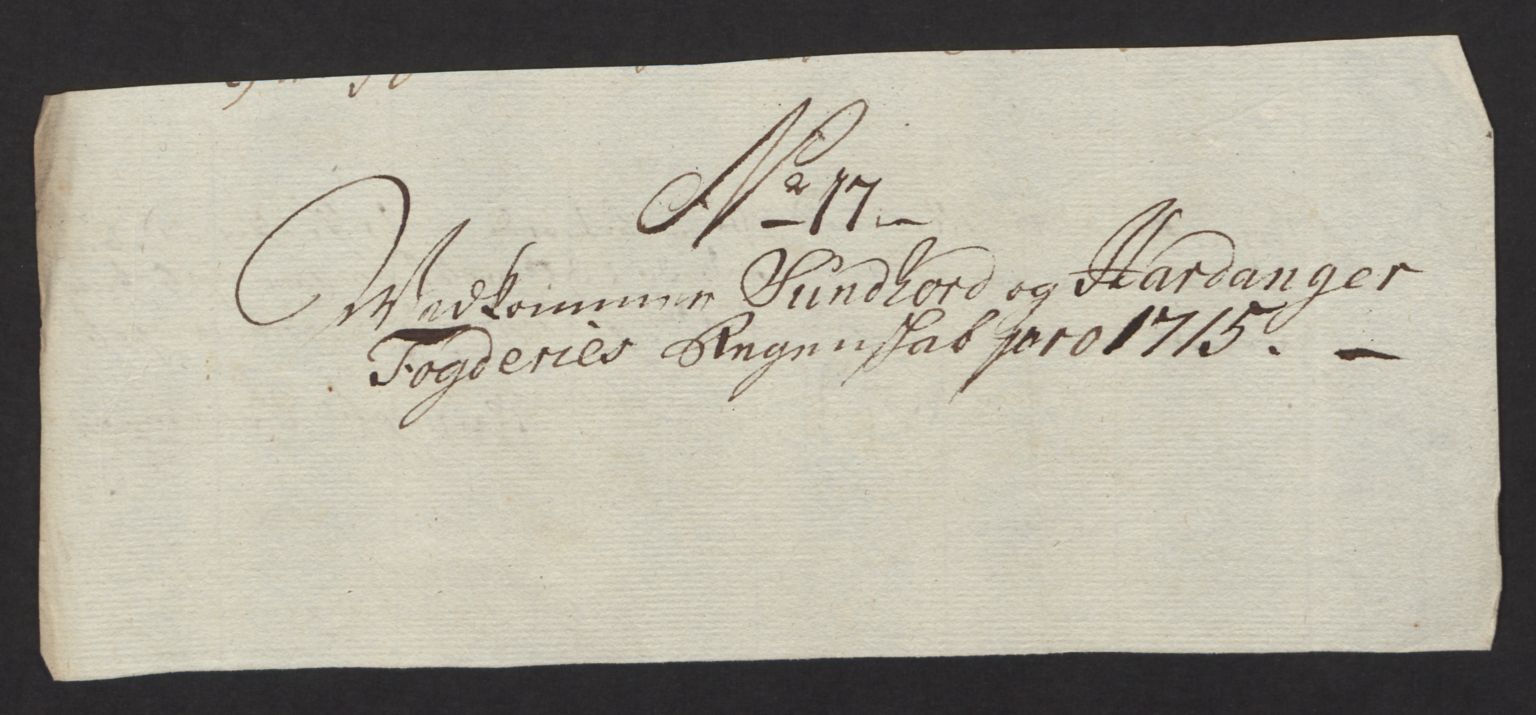 No 17.
Wedkommer Sundhord og Hardanger
Fogderies Regenskab pro 1715.